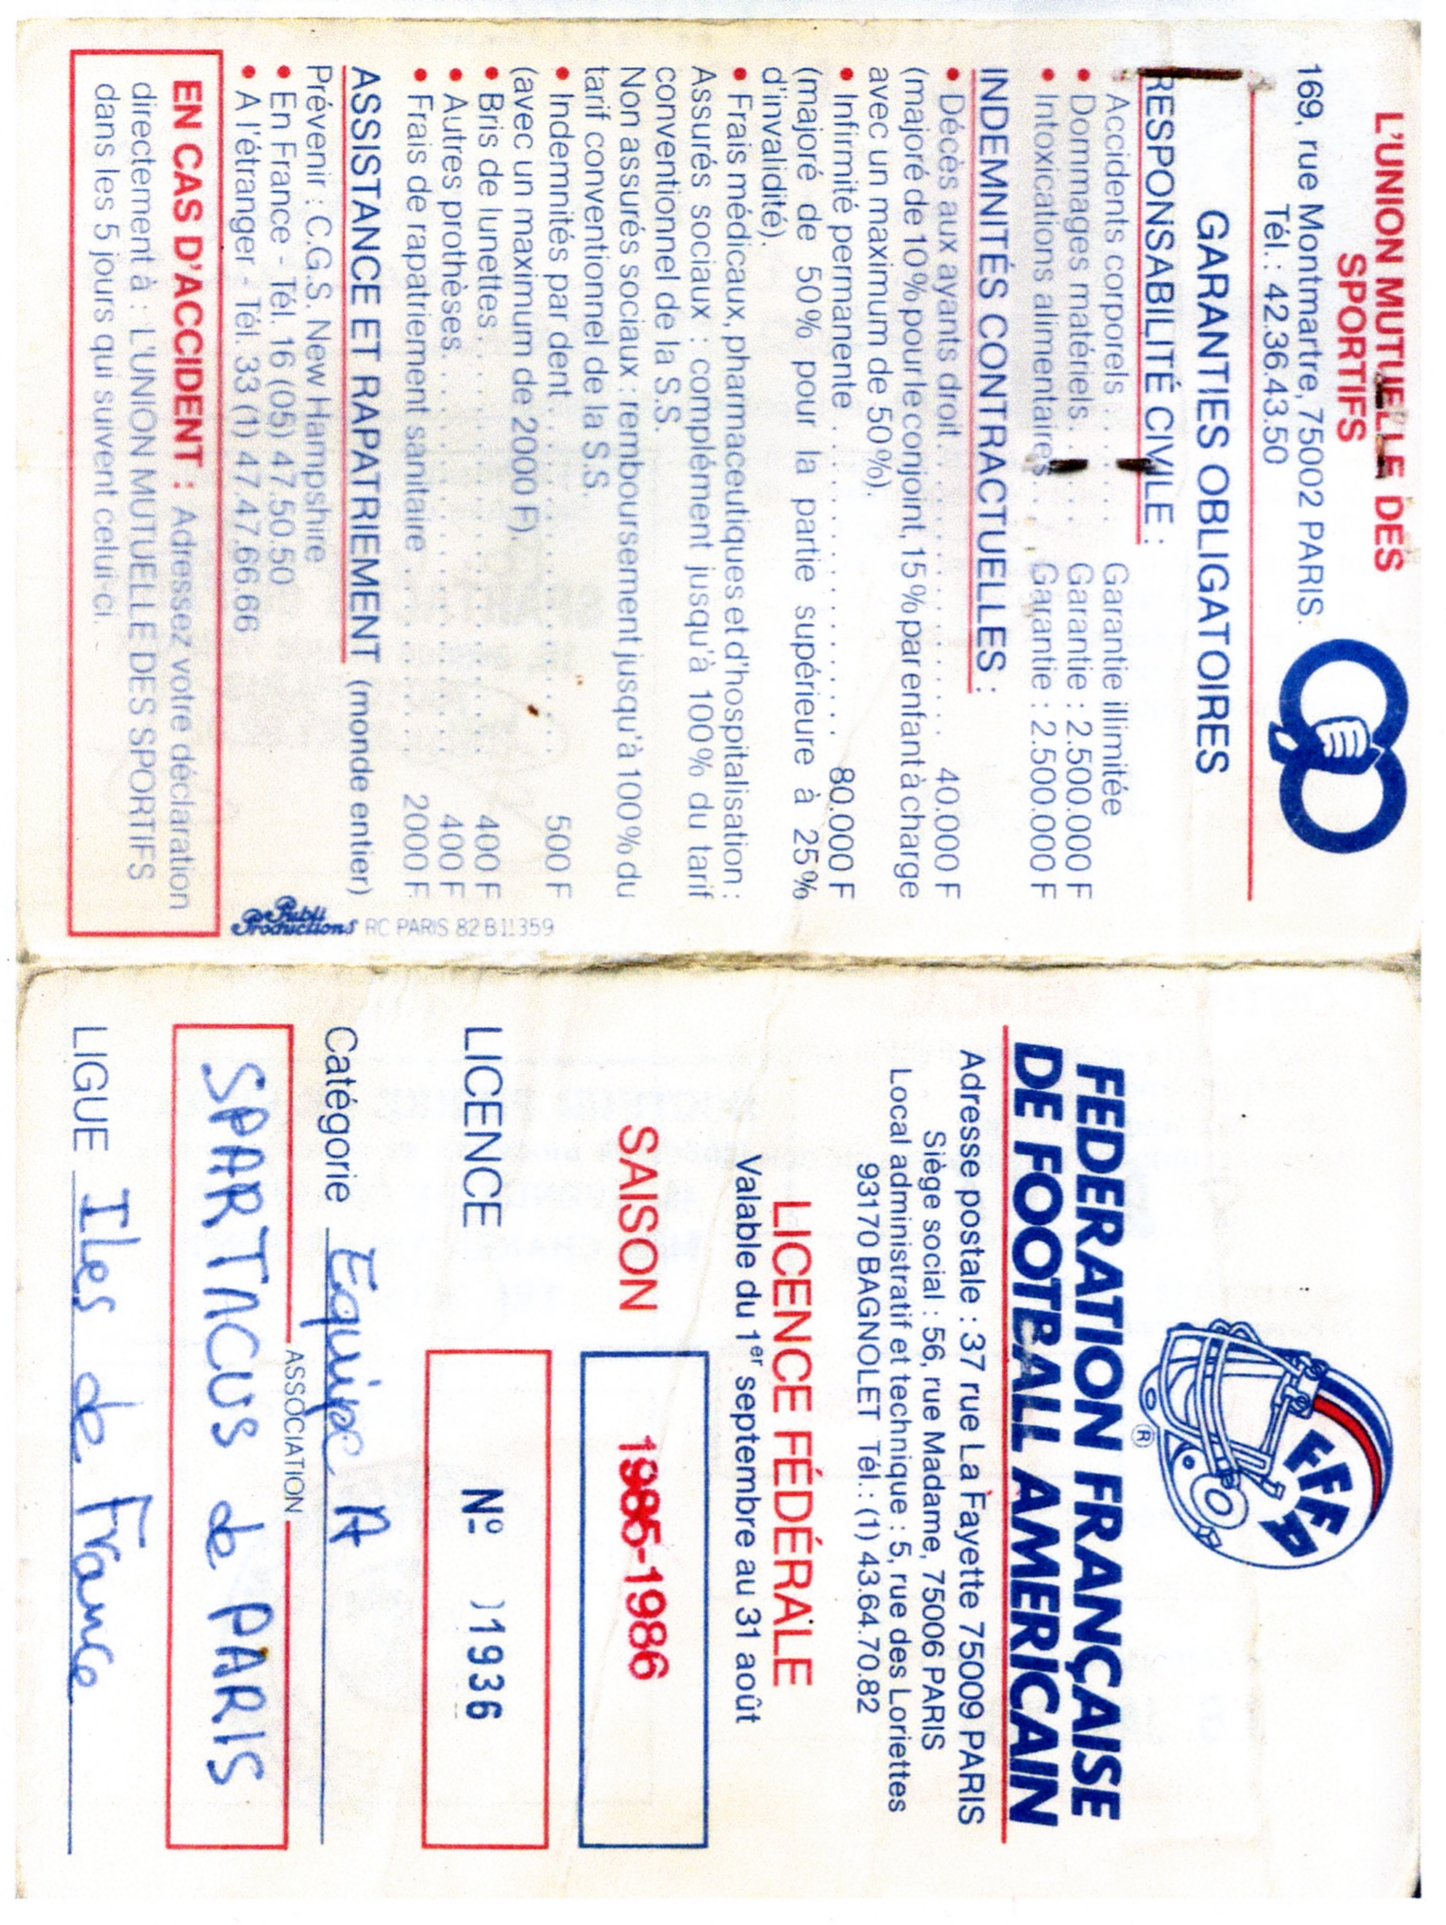 L'UNION MUTUELLE DES
SPORTIFS
169, rue Montmartre, 75002 PARIS.
Tél.: 42.36.43.50
GARANTIES OBLIGATOIRES
RESPONSABILITÉ CIVILE :
Accidents corporels . . . . . . Garantie illimitée
• Dommages matériels. . . . . Garantie : 2.500.000 F
• Intoxications alimentaires . . Garantie : 2.500.000 F
INDEMNITÉS CONTRACTUELLES :
• Décès aux ayants droit . . . . . . . . . . . . . . 40.000 F
(majoré de 10% pour le conjoint, 15% par enfant à charge
avec un maximum de 50%).
• Infirmité permanente . . . . . . . . . . . . . . . 80.000 F
(majoré de 50% pour la partie supérieure à 25%
d'invalidité).
• Frais médicaux, pharmaceutiques et d'hospitalisation :
Assurés sociaux : complément jusqu'à 100% du tarif
conventionnel de la S.S.
Non assurés sociaux : remboursement jusqu'à 100% du
tarif conventionnel de la S.S.
• Indemnités par dent . . . . . . . . . . . . . . . . 500 F
(avec un maximum de 2000 F).
• Bris de lunettes . . . . . . . . . . . . . . . . . . . 400 F
• Autres prothèses. . . . . . . . . . . . . . . . . . . 400 F
• Frais de rapatriement sanitaire . . . . . . . 2000 F
ASSISTANCE ET RAPATRIEMENT (monde entier)
Prévenir : C.G.S. New Hampshire
• En France - Tél. 16 (05) 47.50.50
• A l'étranger - Tél. 33 (1) 47.47.66.66
EN CAS D'ACCIDENT : Adressez votre déclaration
directement à : L'UNION MUTUELLE DES SPORTIFS
dans les 5 jours qui suivent celui-ci.
Publi
Productions RC PARIS 82 B 11359
FFFA
®
FEDERATION FRANÇAISE
DE FOOTBALL AMERICAIN
Adresse postale : 37 rue La Fayette 75009 PARIS
Siège social : 56, rue Madame, 75006 PARIS
Local administratif et technique : 5, rue des Loriettes
93170 BAGNOLET Tél.: (1) 43.64.70.82
LICENCE FÉDÉRALE
Valable du 1er septembre au 31 août
SAISON 1985-1986
LICENCE Nº 11936
Catégorie Equipe A
ASSOCIATION
SPARTACUS de PARIS
LIGUE Iles de France